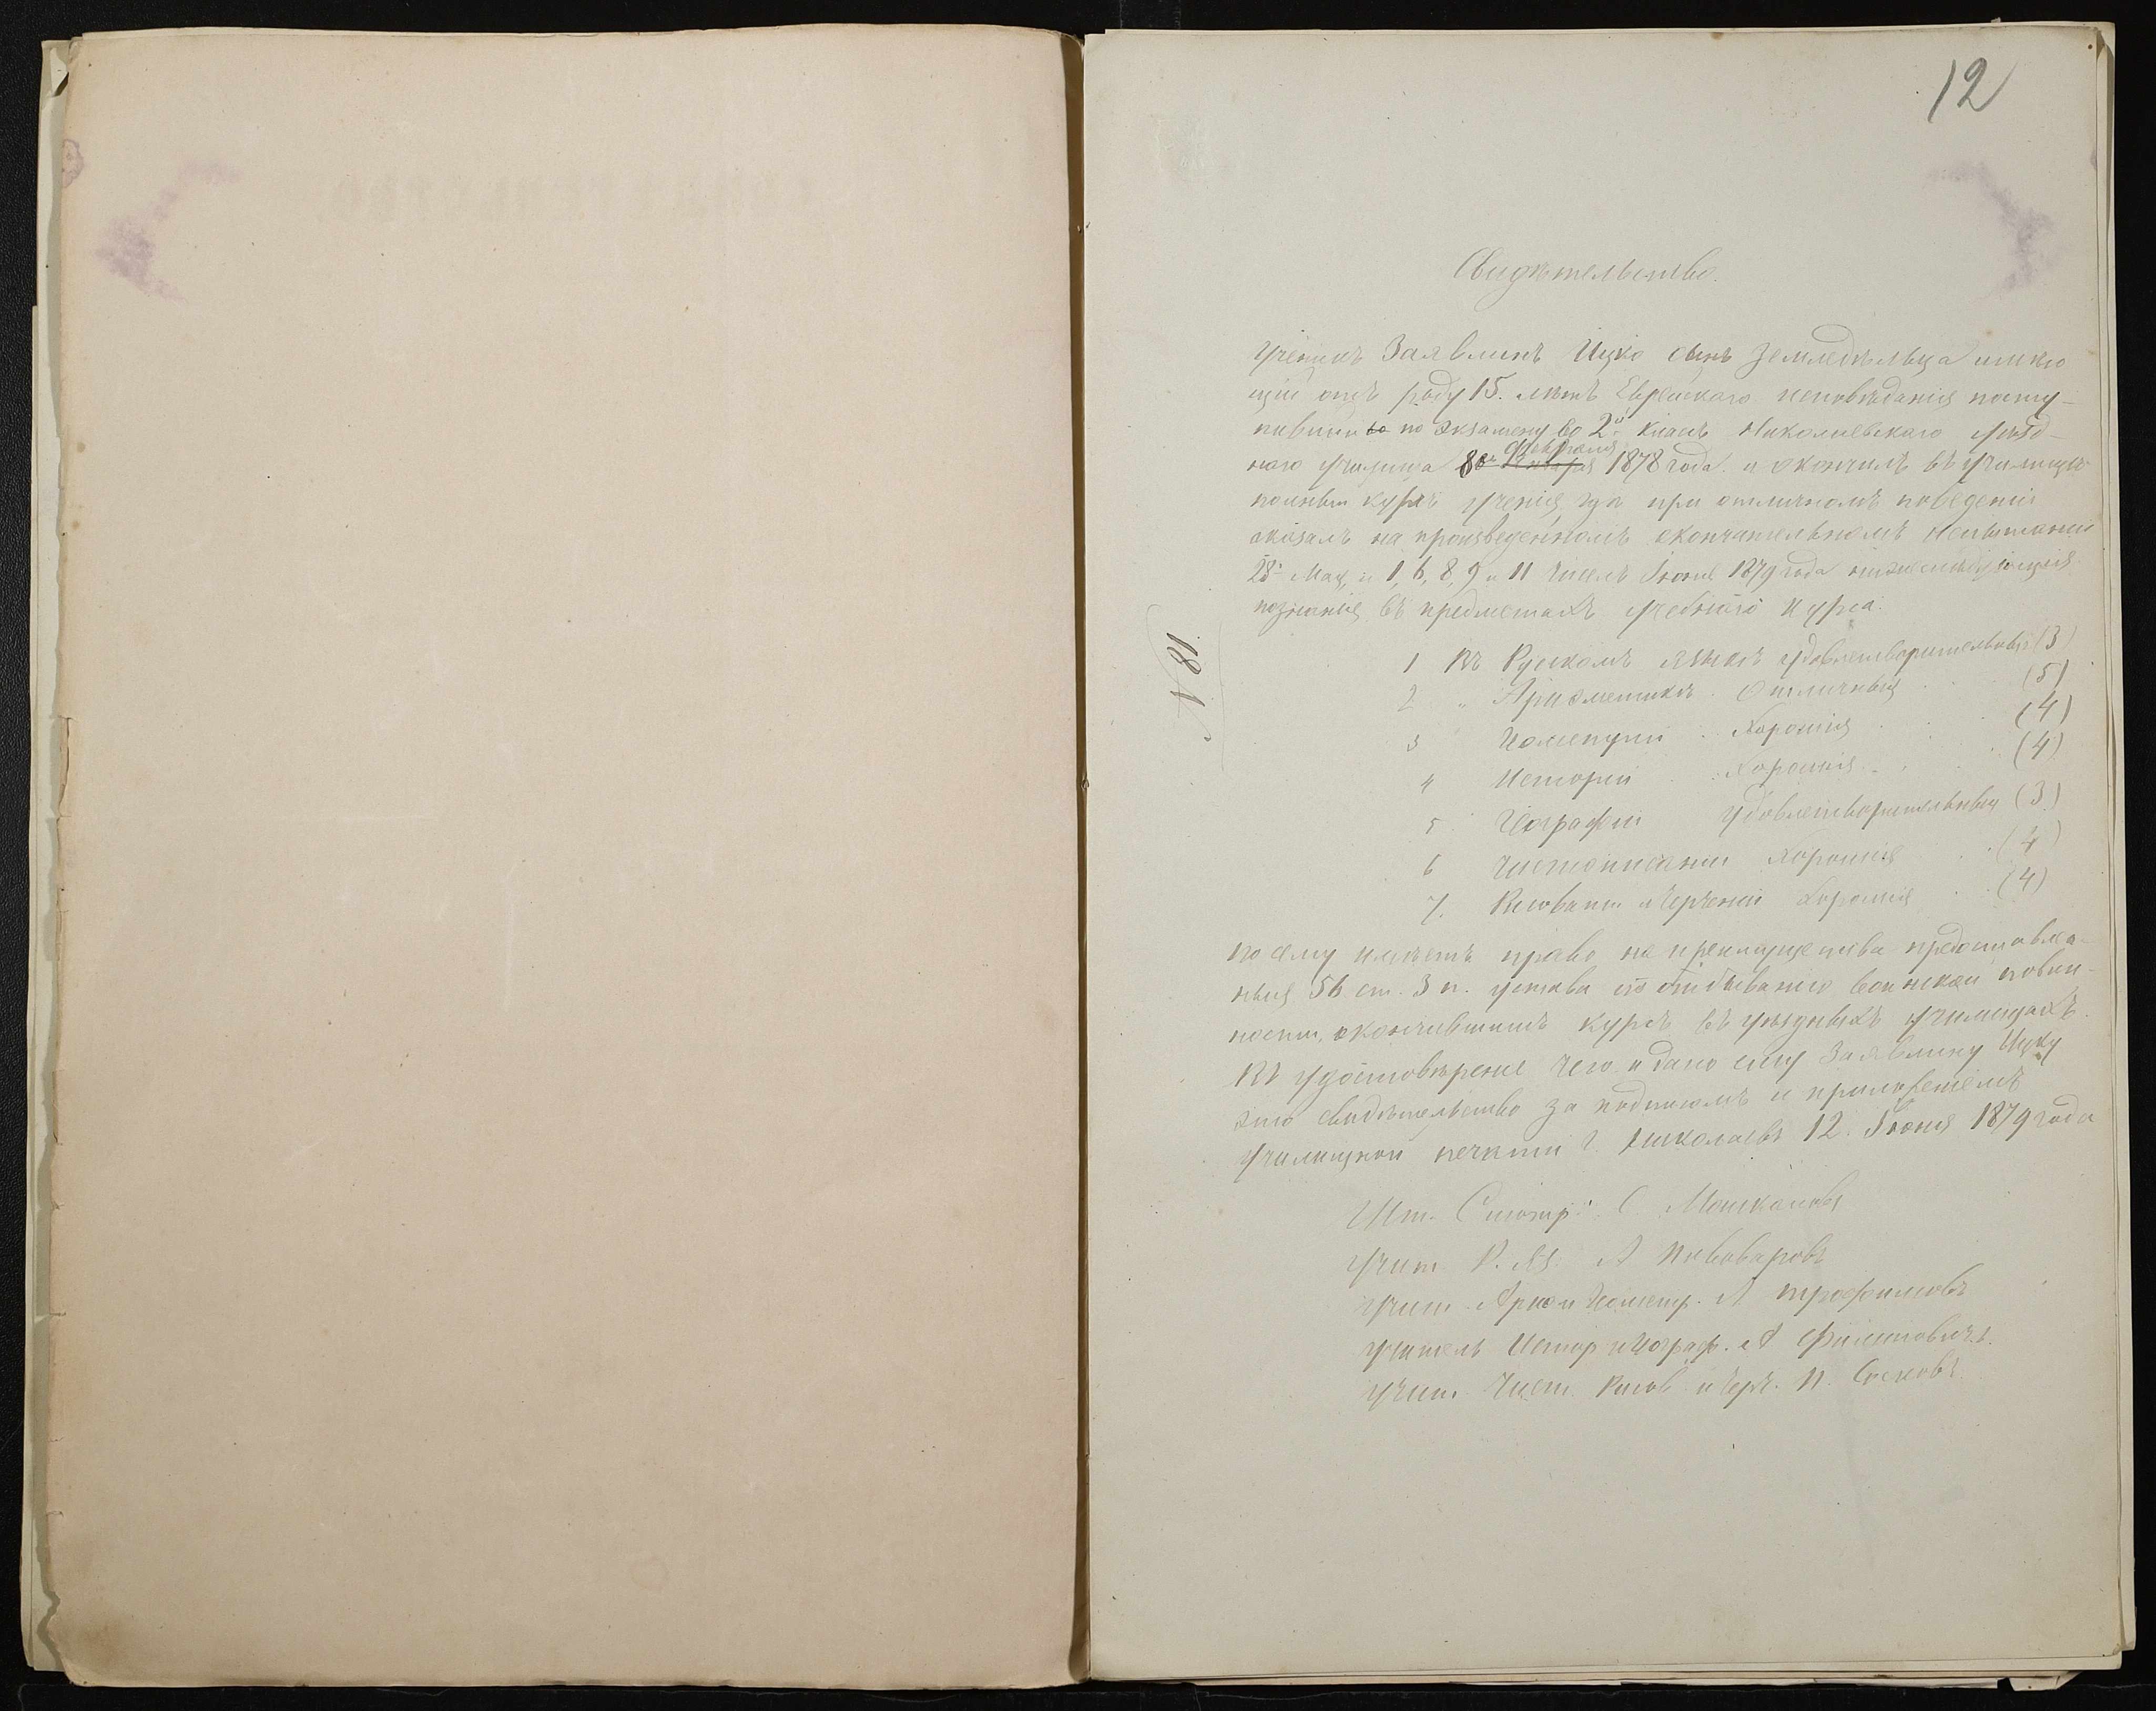 12
Свидѣтельство.
Ученикъ Заявлинъ Ицко сынъ земледѣльца имѣю
щій отъ роду 15. лѣтъ Еврейскаго исповѣданія посту-
пившій во по экзамену во 2й класъ Николаевскаго уѣзд-
февраля
наго училища 8го Января 1878 года. и окончилъ въ училищѣ
полный курсъ ученія, гдѣ при отличномъ поведеніи
оказалъ на произведенномъ окончательномъ испытаніи
28 Мая, и 1, 6, 8, 9 и 11 чиселъ Іюня 1879 года нижеслѣдующія
познанія въ предметахъ учебнаго курса.
N 81.
1 Въ Рускомъ языкѣ удовлетворительныя (3)
2 „ Ариѳметикѣ. Отличныя (5)
3 Геометріи. Хорошія (4)
4 Исторіи. Хорошія (4)
5 Географіи удовлетворительныя (3)
6 Чистописаніи хорошія (4)
7. Рисованіи и Черченіи хорошія (4)
по сему имѣетъ право на преимущества предоставлен-
ныя 56 ст. 3 п. устава по отбыванію воинской повин-
ности, окончившимъ курсъ въ уѣздныхъ училищахъ.
Въ удостовѣреніе чего и дано ему Заявлину Ицку
это свидѣтельство за подписомъ и приложеніемъ
училищной печати г. Николаевъ 12. Іюня 1879 года
Шт. Смотр. С. Машкановъ
Учит. Р. яз. А Пивоваровъ
Учит. Ариѳ и Геометр. А Трофимовъ
Учитель Истор и Географ. А Филиповичъ.
Учит. Чист. Рисов. и Черч. П. Соколовъ.